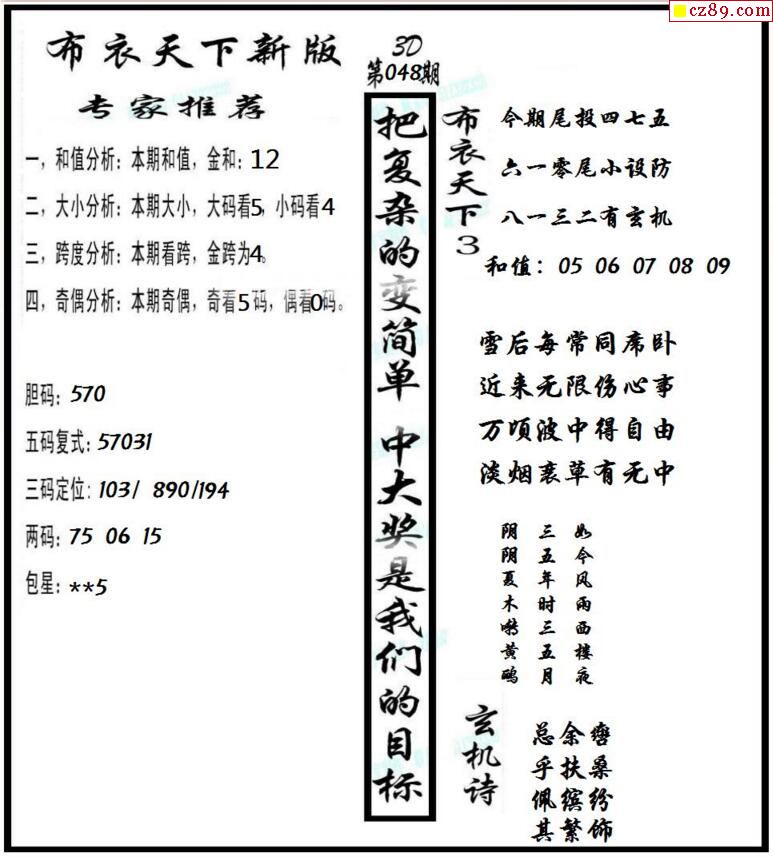 cz89.com
布衣天下新版
专家推荐
一，和值分析：本期和值，金和：12
二，大小分析：本期大小，大码看5，小码看4
三，跨度分析：本期看跨，金跨为4。
四，奇偶分析：本期奇偶，奇看5码，偶看0码。
胆码：570
五码复式：57031
三码定位：103/ 890/194
两码：75 06 15
包星：**5
3D
第048期
把复杂的变简单 中大奖是我们的目标
布衣天下3
今期尾投四七五
六一零尾小设防
八一三二有玄机
和值：05 06 07 08 09
雪后每常同席卧
近来无限伤心事
万顷波中得自由
淡烟衰草有无中
如今风雨西楼夜
三五年时三五月
阴阴夏木啭黄鹂
玄机诗
总余辔
乎扶桑
佩缤纷
其繁饰